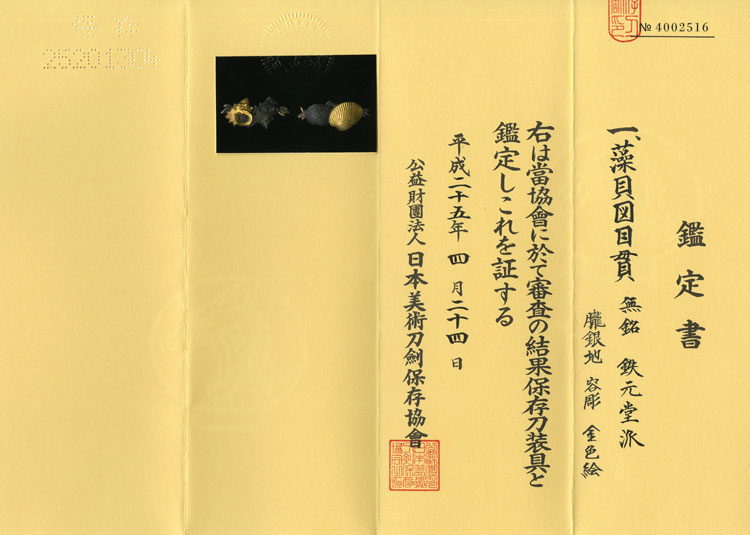 № 4002516
鑑定書
一、藻貝図目貫 無銘 鉄元堂派
朧銀地 容彫 金色絵
右は當協會に於て審査の結果保存刀装具と
鑑定しこれを証する
平成二十五年 四月二十四日
公益財團法人 日本美術刀劍保存協會
保存